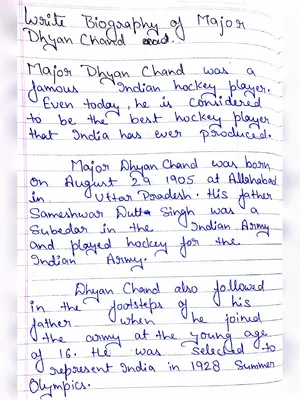 Write Biography of Major
Dhyan Chand
Major Dhyan Chand was a
famous Indian hockey player.
Even today, he is considered
to be the best hockey player
that India has ever produced.
Major Dhyan Chand was born
on August 29 1905 at Allahabad
in Uttar Pradesh. His father
Sameshwar Dutt Singh was a
Subedar in the Indian Army
and played hockey for the
Indian Army.
Dhyan Chand also followed
in the footsteps of his
father when he joined
the army at the young age
of 16. He was selected to
represent India in 1928 Summer
Olympics.